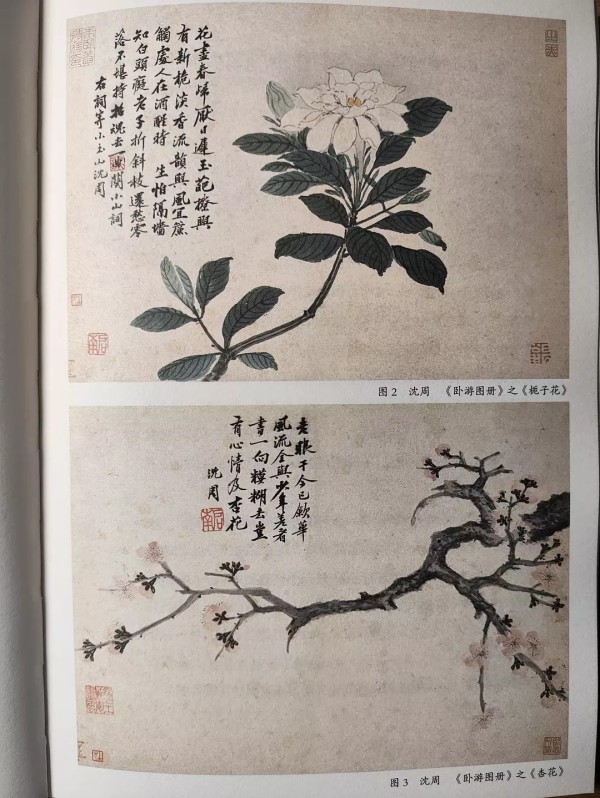 花盡春歸厭日遲玉葩撩興
有新梔淡香流韻與風宜簾
觸處人在酒醒時 生怕隔牆
知白頭癡老子折斜枝還愁零
落不堪持招魂去一闋小山詞
右詞寄小重山沈周
图2 沈周 《卧游图册》之《栀子花》
老眼于今已歛華
風流全與少年差看
書一向糢糊去豈
有心情及杏花
沈周
图3 沈周 《卧游图册》之《杏花》